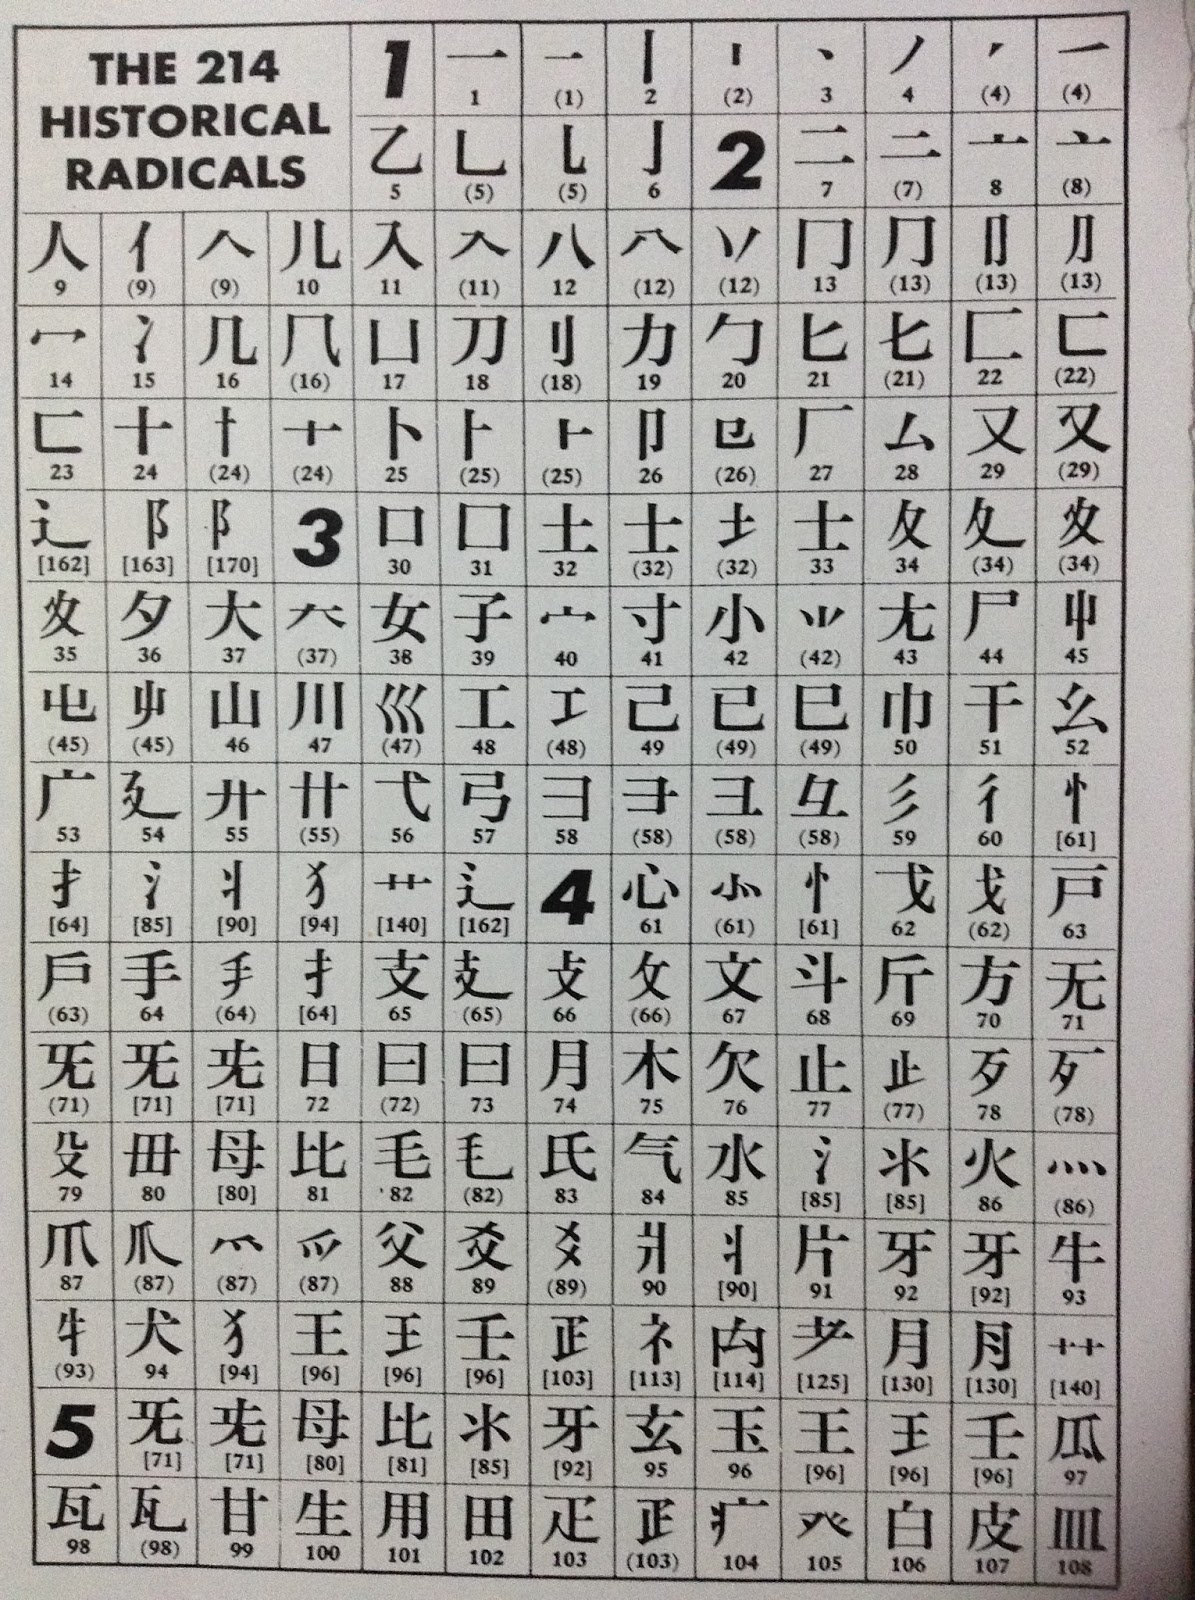 THE 214
HISTORICAL
RADICALS
1 一 一 丨 丨 丶 丿 丿 一
1 (1) 2 (2) 3 4 (4) (4)
乙 乚 乚 亅 2 二 二 亠 亠
5 (5) (5) 6 7 (7) 8 (8)
人 亻 𠆢 儿 入 入 八 八 丷 冂 ⺆ 〢 刂
9 (9) (9) 10 11 (11) 12 (12) (12) 13 (13) (13) (13)
冖 冫 几 𠘨 凵 刀 刂 力 勹 匕 匕 匚 匚
14 15 16 (16) 17 18 (18) 19 20 21 (21) 22 (22)
匸 十 十 十 卜 ⺊ ⺊ 卩 㔾 厂 厶 又 又
23 24 (24) (24) 25 (25) (25) 26 (26) 27 28 29 (29)
辶 阝 阝 3 口 囗 土 土 土 士 夂 夂 夂
[162] [163] [170] 30 31 32 (32) (32) 33 34 (34) (34)
夊 夕 大 大 女 子 宀 寸 小 ⺌ 尢 尸 屮
35 36 37 (37) 38 39 40 41 42 (42) 43 44 45
屯 屮 山 川 巛 工 工 己 已 巳 巾 干 幺
(45) (45) 46 47 (47) 48 (48) 49 (49) (49) 50 51 52
广 廴 廾 廿 弋 弓 彐 彐 彐 彑 彡 彳 忄
53 54 55 (55) 56 57 58 (58) (58) (58) 59 60 [61]
扌 氵 丬 犭 艹 辶 4 心 ⺗ 忄 戈 戈 戸
[64] [85] [90] [94] [140] [162] 61 (61) [61] 62 (62) 63
戶 手 手 扌 支 支 攴 攵 文 斗 斤 方 无
(63) 64 (64) [64] 65 (65) 66 (66) 67 68 69 70 71
旡 旡 旡 日 曰 曰 月 木 欠 止 止 歹 歹
(71) [71] [71] 72 (72) 73 74 75 76 77 (77) 78 (78)
殳 毋 母 比 毛 毛 氏 气 水 氵 氺 火 灬
79 80 [80] 81 82 (82) 83 84 85 [85] [85] 86 (86)
爪 爪 爫 爫 父 爻 爻 爿 丬 片 牙 牙 牛
87 (87) (87) (87) 88 89 (89) 90 [90] 91 92 [92] 93
牜 犬 犭 王 王 壬 𤴔 礻 禸 耂 月 ⺝ 艹
(93) 94 [94] [96] [96] [96] [103] [113] [114] [125] [130] [130] [140]
5 旡 旡 母 比 氺 牙 玄 玉 王 王 壬 瓜
[71] [71] [80] [81] [85] [92] 95 96 [96] [96] [96] 97
瓦 瓦 甘 生 用 田 疋 𤴔 疒 癶 白 皮 皿
98 (98) 99 100 101 102 103 (103) 104 105 106 107 108